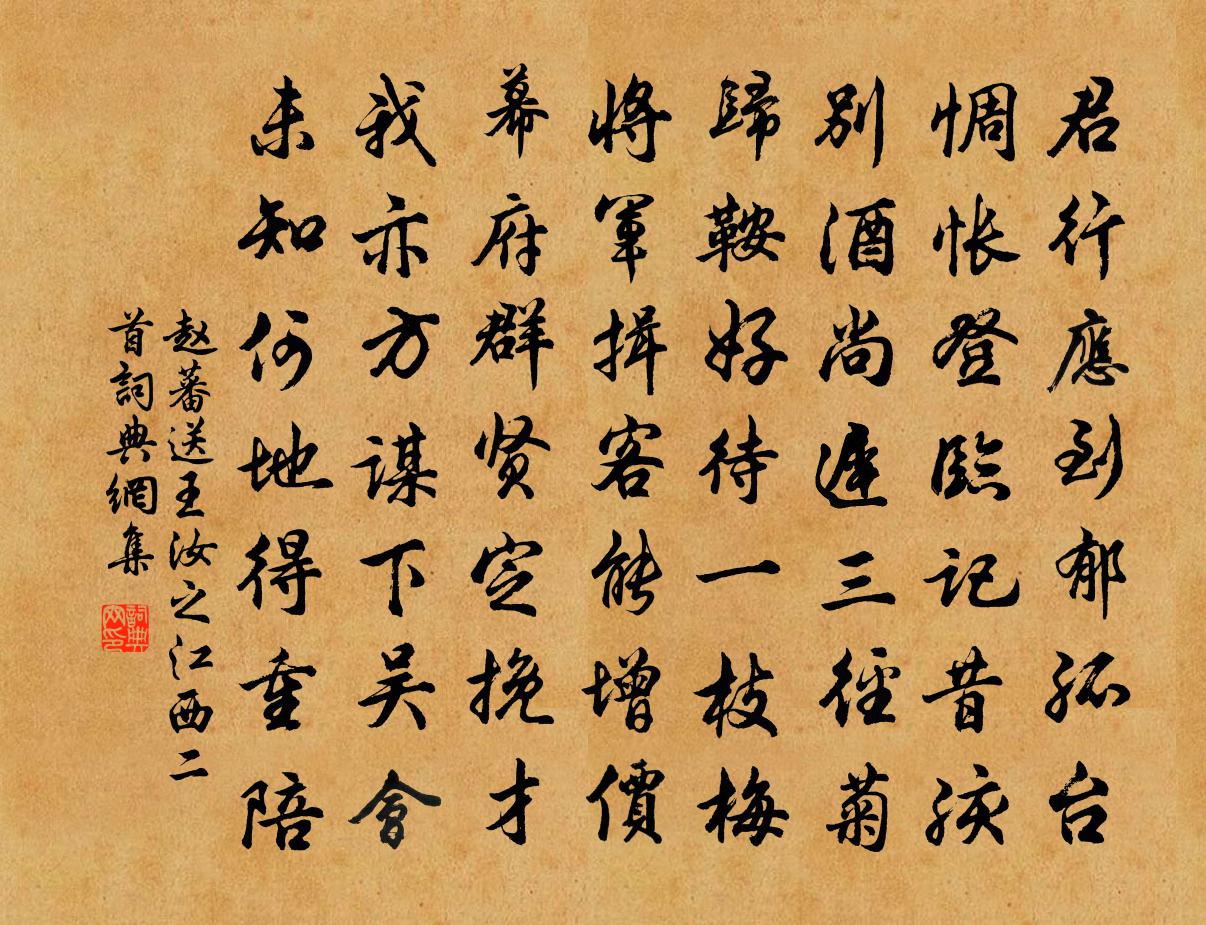 君行應到郁孤台
惆怅登臨记昔孩
別酒尚遲三徑菊
歸鞍好待一枝梅
將軍揖客能增價
幕府群贤定挽才
我亦方谋下吴會
未知何地得重陪
赵蕃送王汝之江西二
首詞典網集
詞典
网印